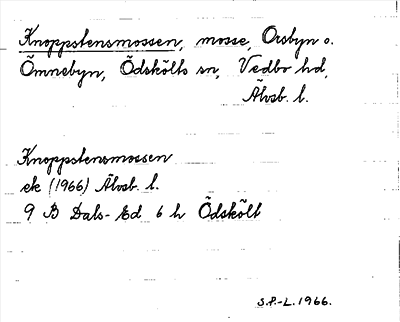 Knoppstensmossen, mosse, Orsbyn o.
Ömnebyn, Ödskölts sn, Vedbo hd,
Älvsb. l.
Knoppstensmossen
ek (1966) Älvsb. l.
9 B Dals-Ed 6 h Ödskölt
S.P.-L. 1966.